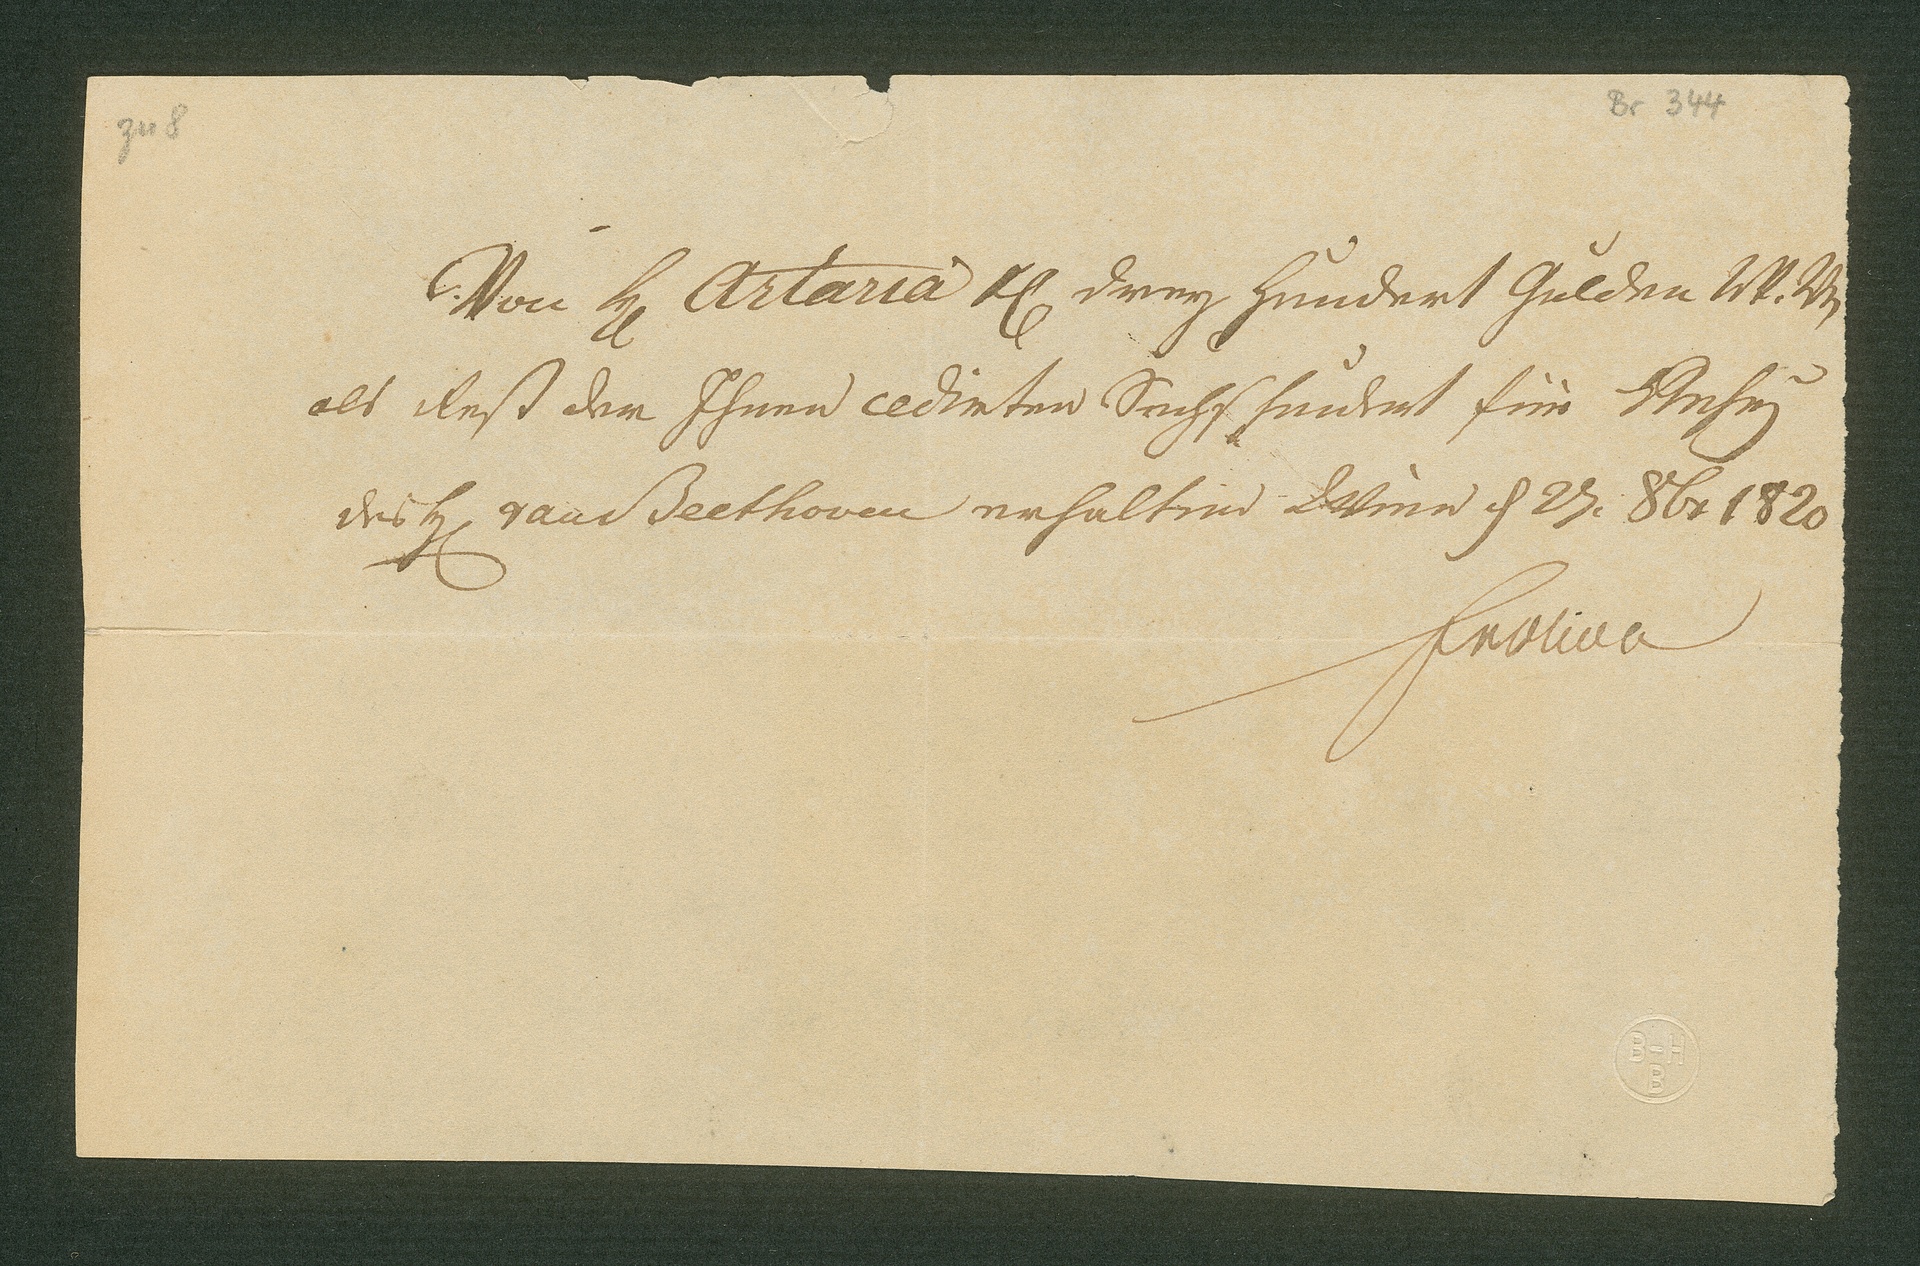 zu 8
Br 344
Von H. Artaria &C drey Hundert Gulden W.W.
als Rest der Ihnen cedirten Sechshundert für Rechng
des H. van Beethoven erhalten Wien d 27. 8br 1820
FrOliva
B-H
B